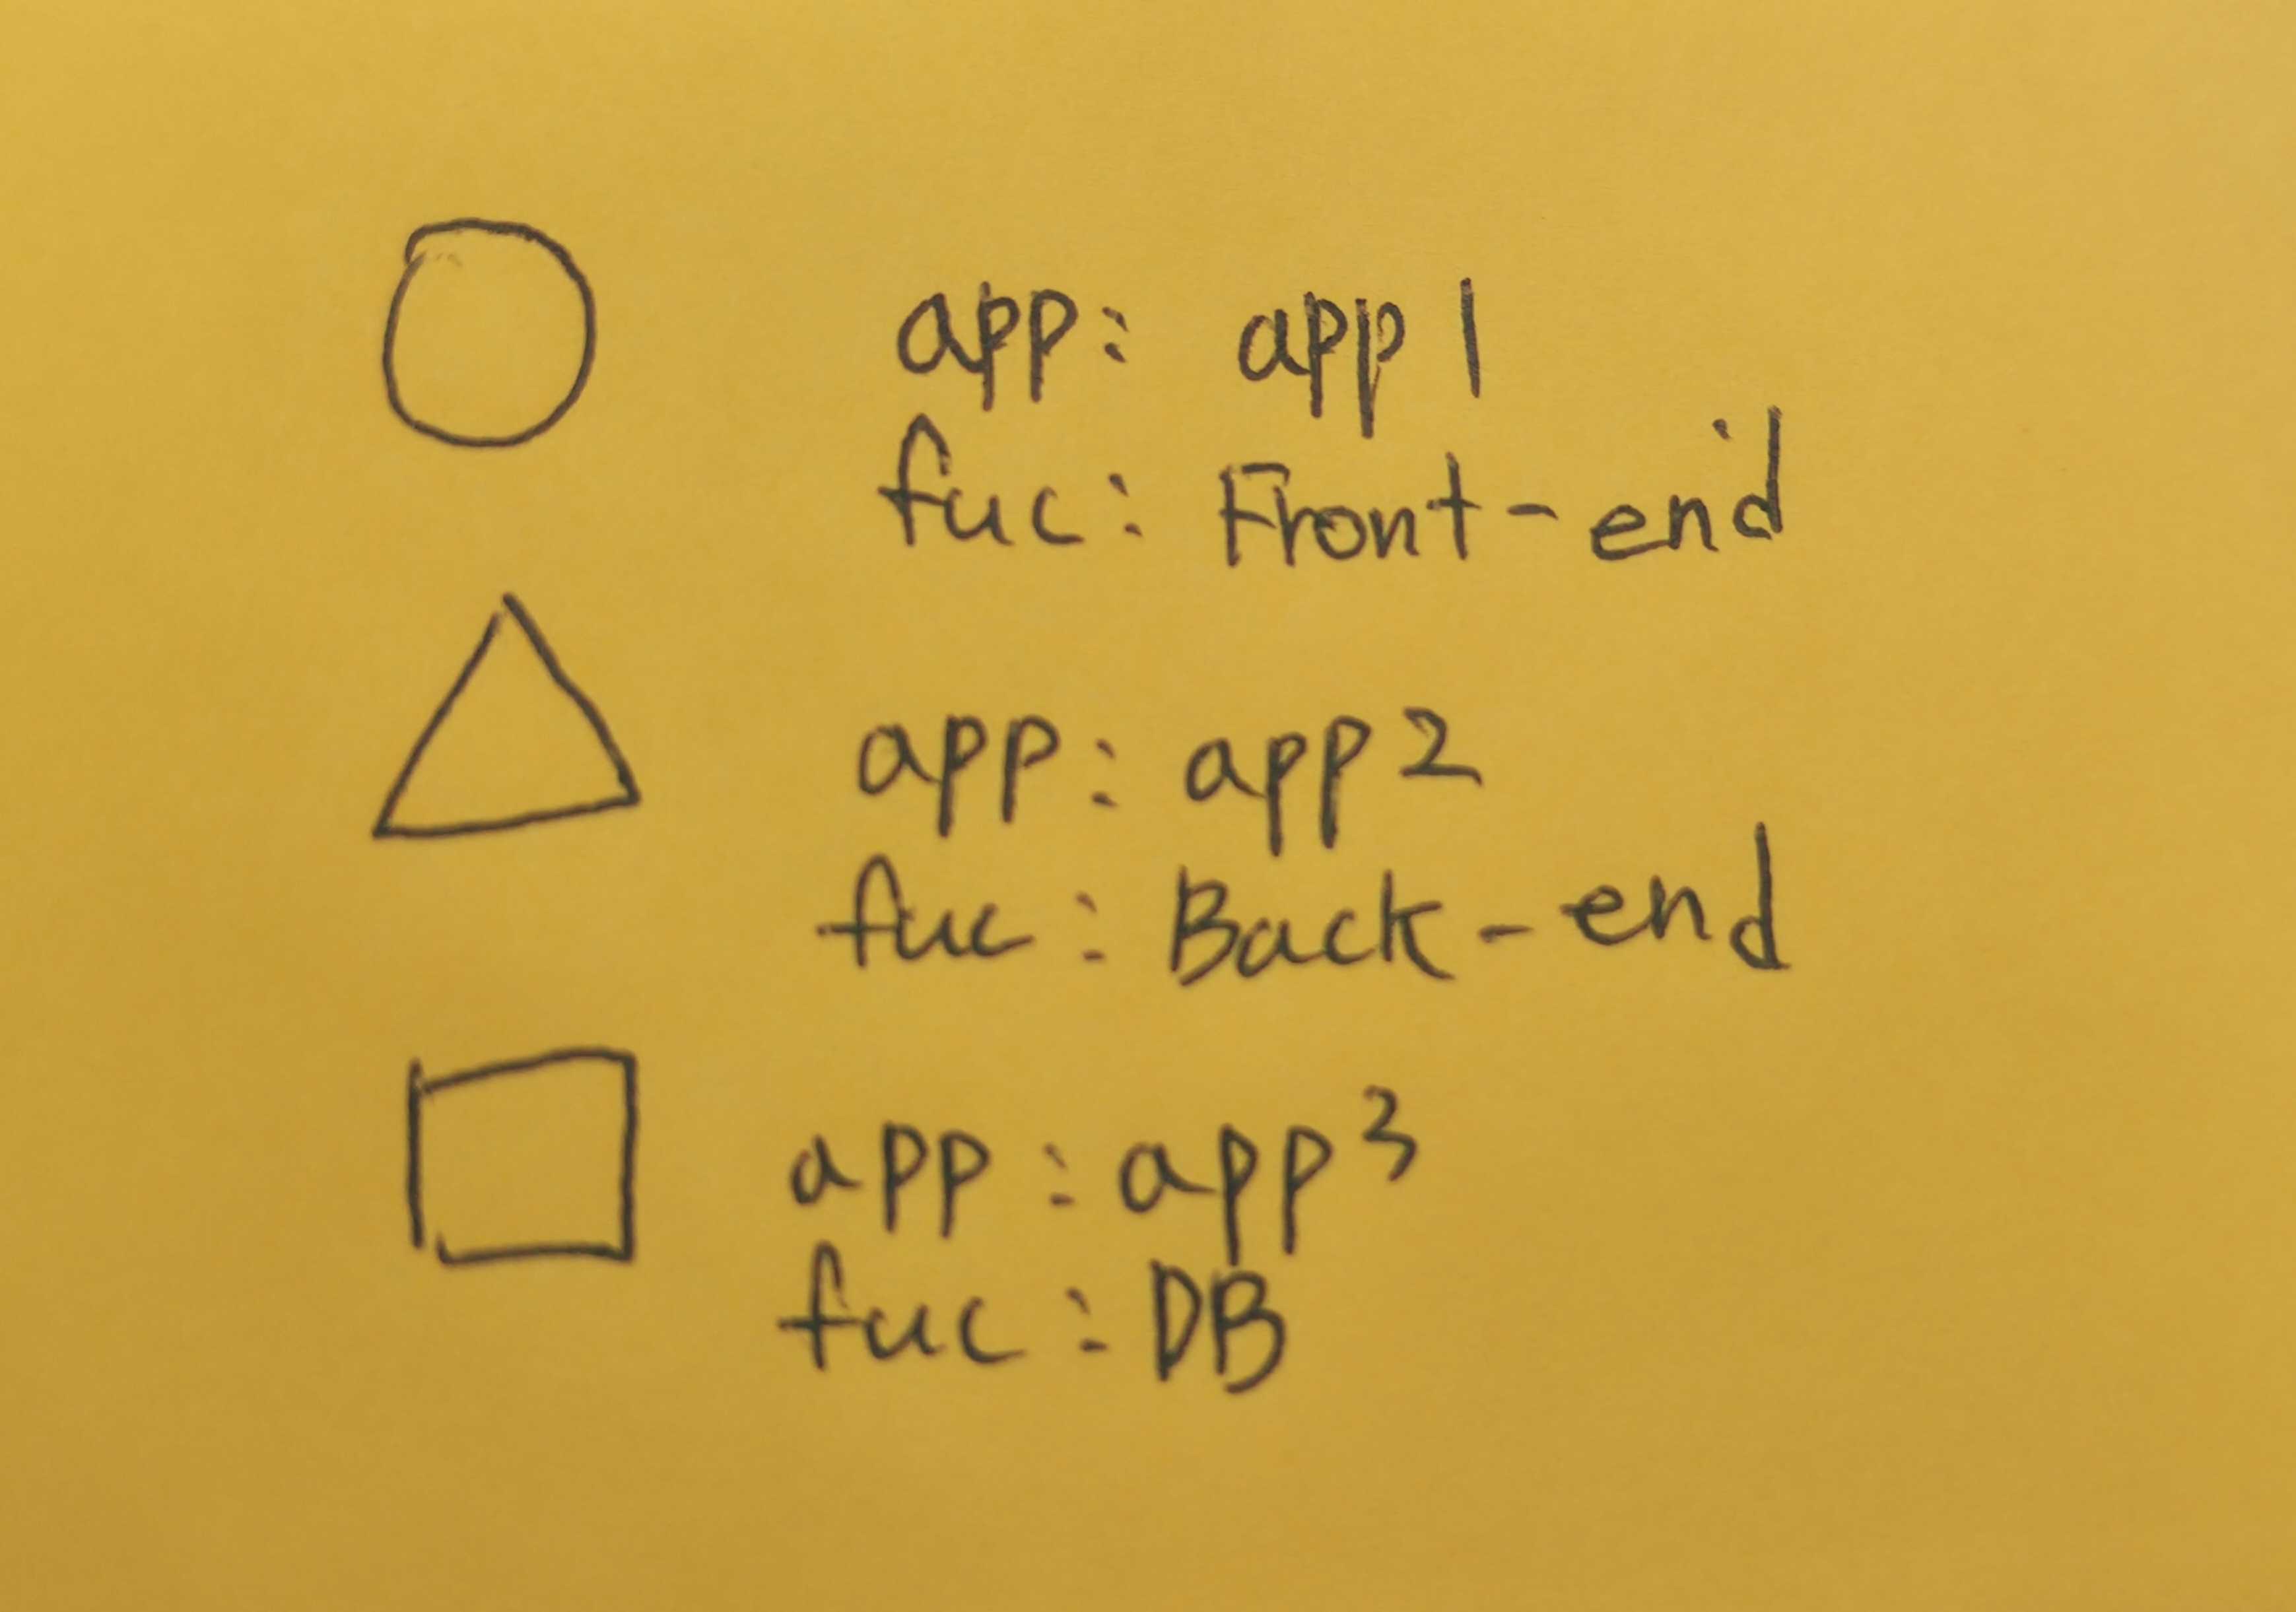 app: app1
fuc: Front-end
app: app2
fuc: Back-end
app: app3
fuc: DB